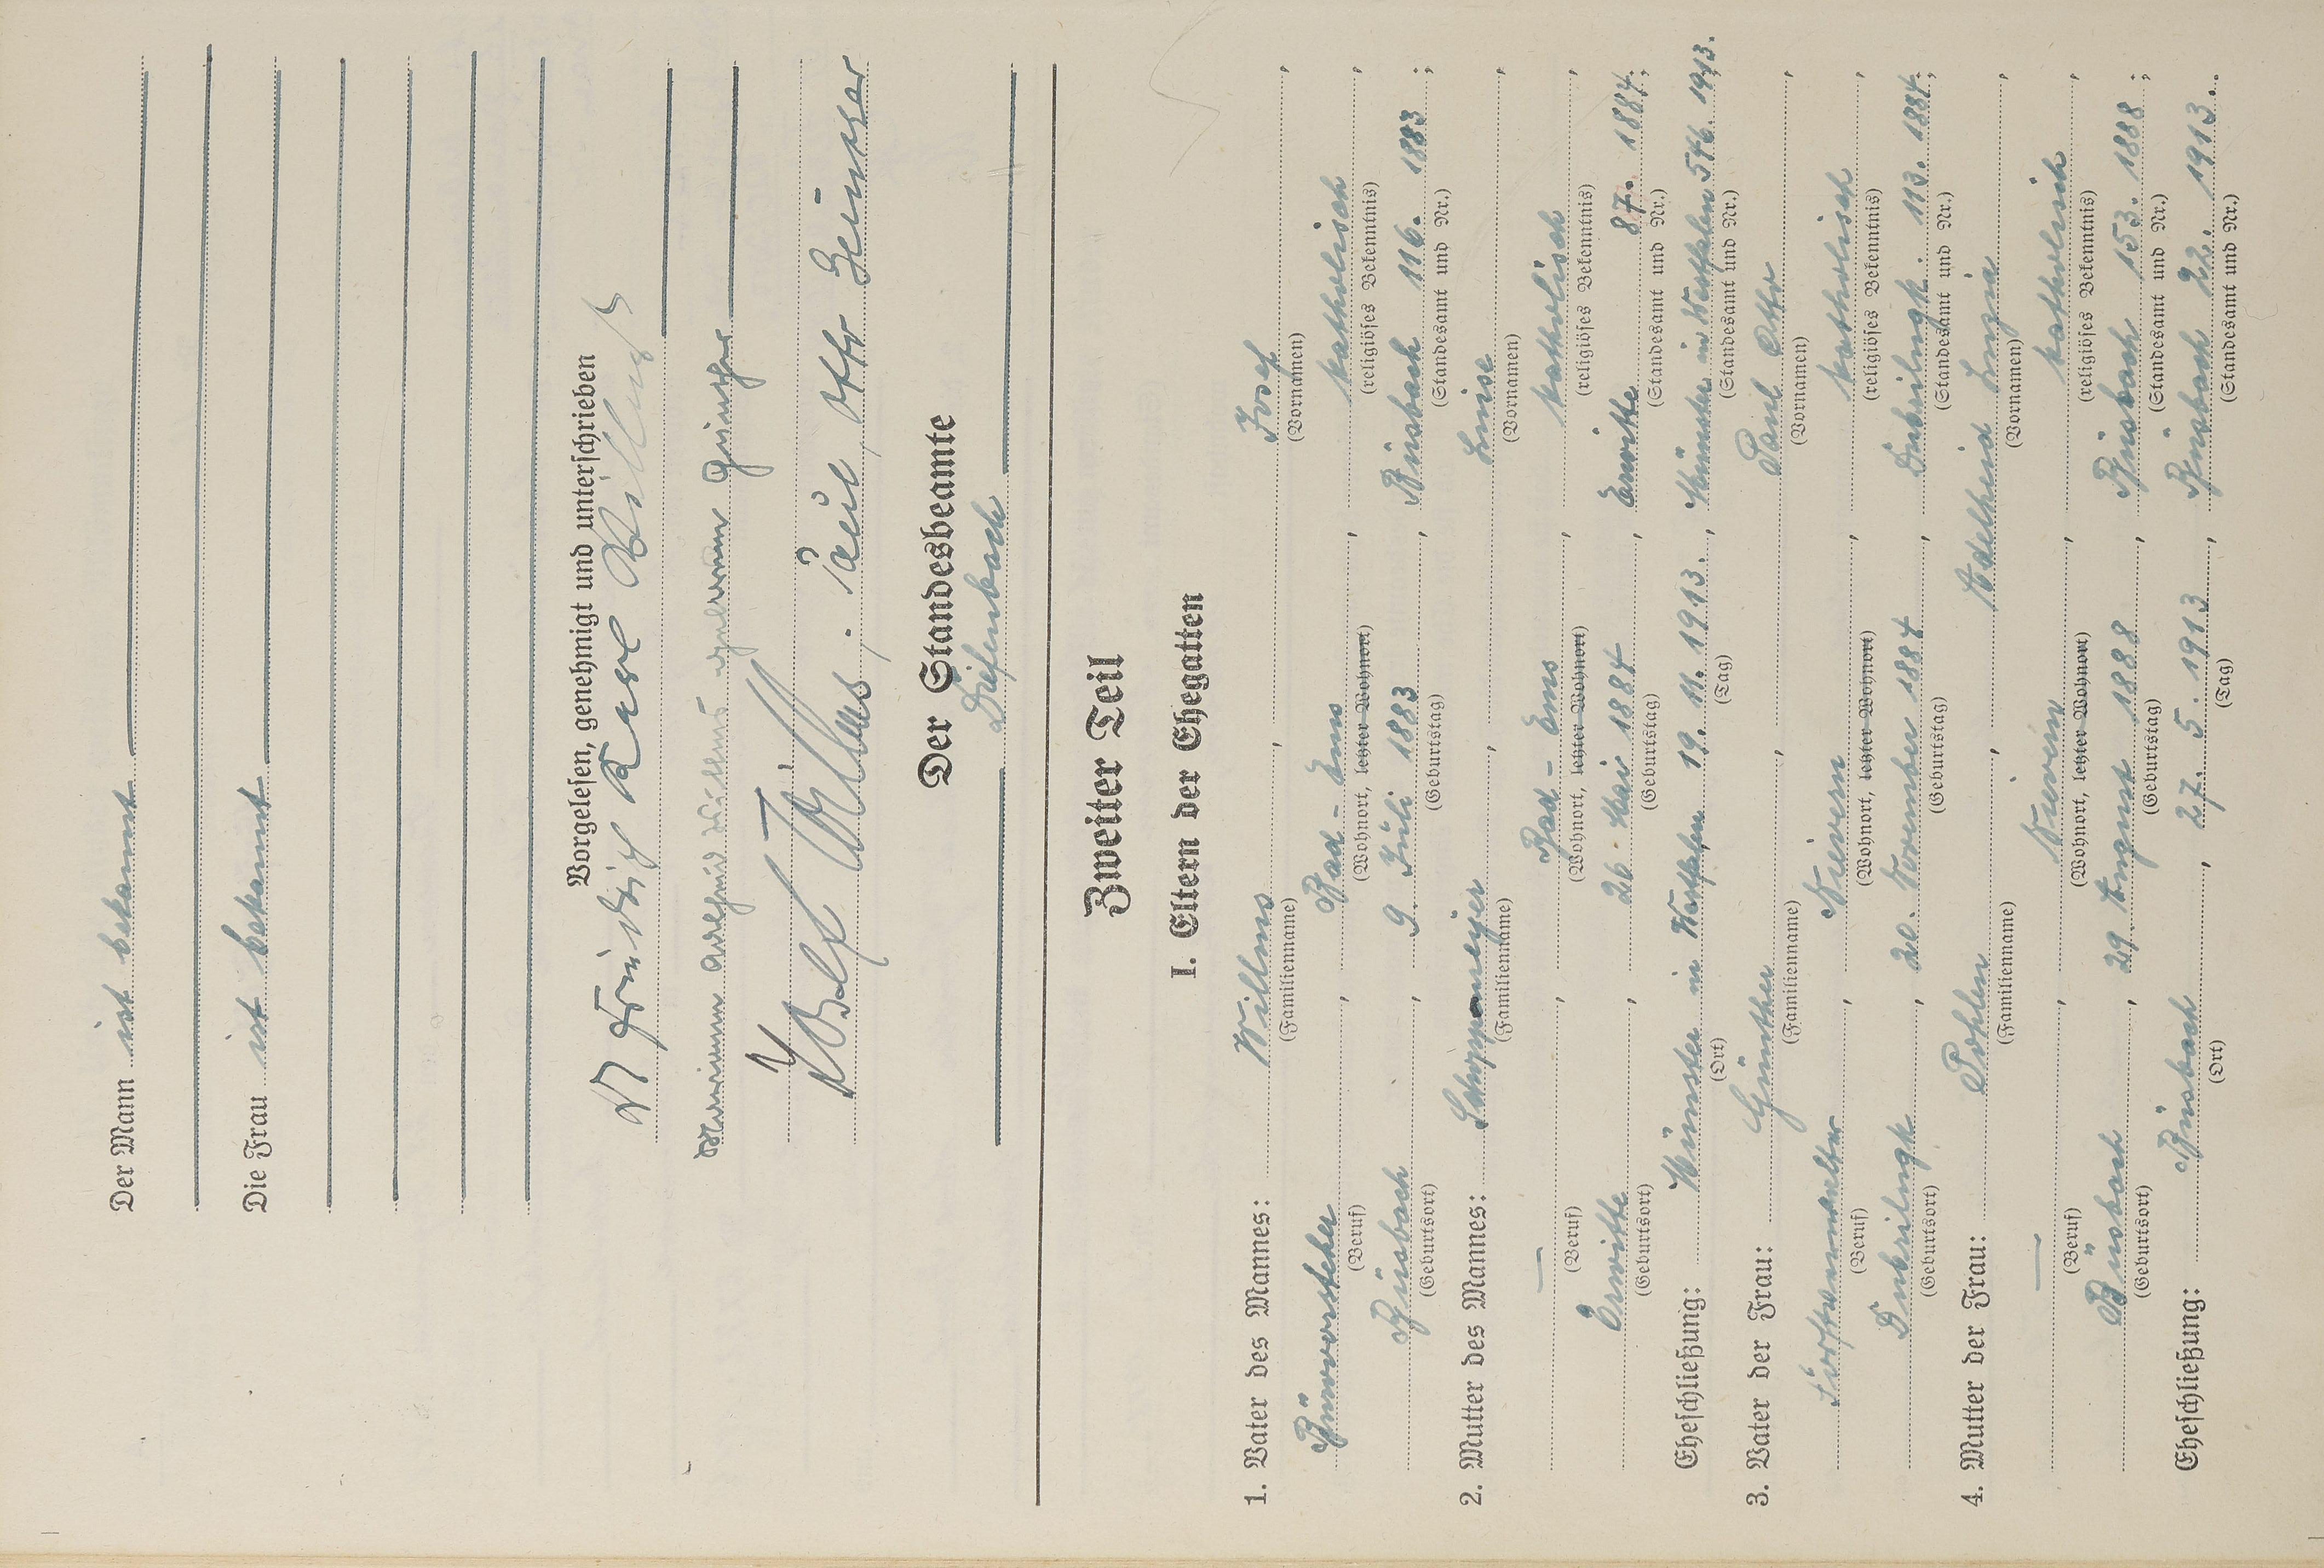 Der Mann ist bekannt
Die Frau ist bekannt
Vorgelesen, genehmigt und unterschrieben
Friedrich Karl Willms
Marianne Adelheid Willms geborene Günther
Willms. Paul Otto Günther
Der Standesbeamte
Diefenbach
Zweiter Teil
I. Eltern der Ehegatten
1. Vater des Mannes: Willms, Josef,
(Familienname) (Vornamen)
Bürovorsteher, Bad-Ems, katholisch,
(Beruf) (Wohnort, letzter Wohnort) (religiöses Bekenntnis)
Büsbach, 9. Juli 1883, Büsbach 116. 1883;
(Geburtsort) (Geburtstag) (Standesamt und Nr.)
2. Mutter des Mannes: Schoppmeijer, Luise,
(Familienname) (Vornamen)
—, Bad-Ems, katholisch,
(Beruf) (Wohnort, letzter Wohnort) (religiöses Bekenntnis)
Erwitte, 26. Mai 1884, Erwitte 87. 1884;
(Geburtsort) (Geburtstag) (Standesamt und Nr.)
Eheschließung: Münster in Westfalen 19. 11. 1913., Münster in Westfalen 546. 1913.
(Ort) (Tag) (Standesamt und Nr.)
3. Vater der Frau: Günther, Paul Otto,
(Familienname) (Vornamen)
Forstverwalter, Nievern, katholisch,
(Beruf) (Wohnort, letzter Wohnort) (religiöses Bekenntnis)
20. November 1884, 113. 1884;
(Geburtsort) (Geburtstag) (Standesamt und Nr.)
4. Mutter der Frau: Pohlen, Adelheid Luzia,
(Familienname) (Vornamen)
—, Nievern, katholisch,
(Beruf) (Wohnort, letzter Wohnort) (religiöses Bekenntnis)
Büsbach, 29. August 1888, Büsbach 153. 1888;
(Geburtsort) (Geburtstag) (Standesamt und Nr.)
Eheschließung: Büsbach, 27. 5. 1913, Büsbach 22. 1913.
(Ort) (Tag) (Standesamt und Nr.)